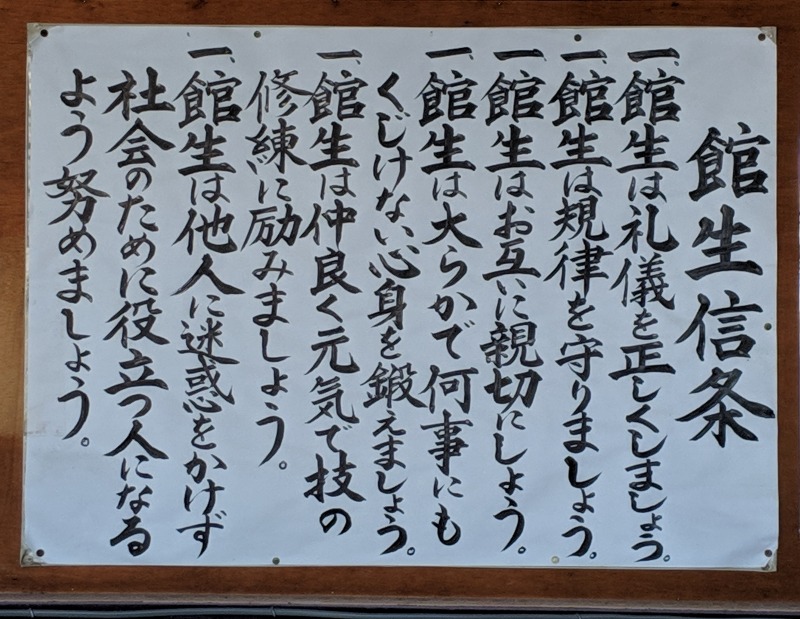 館生信条
一、館生は礼儀を正しくしましょう。
一、館生は規律を守りましょう。
一、館生はお互いに親切にしょう。
一、館生は大らかで何事にも
くじけない心身を鍛えましょう。
一、館生は仲良く元気で技の
修練に励みましょう。
一、館生は他人に迷惑をかけず
社会のために役立つ人になる
よう努めましょう。